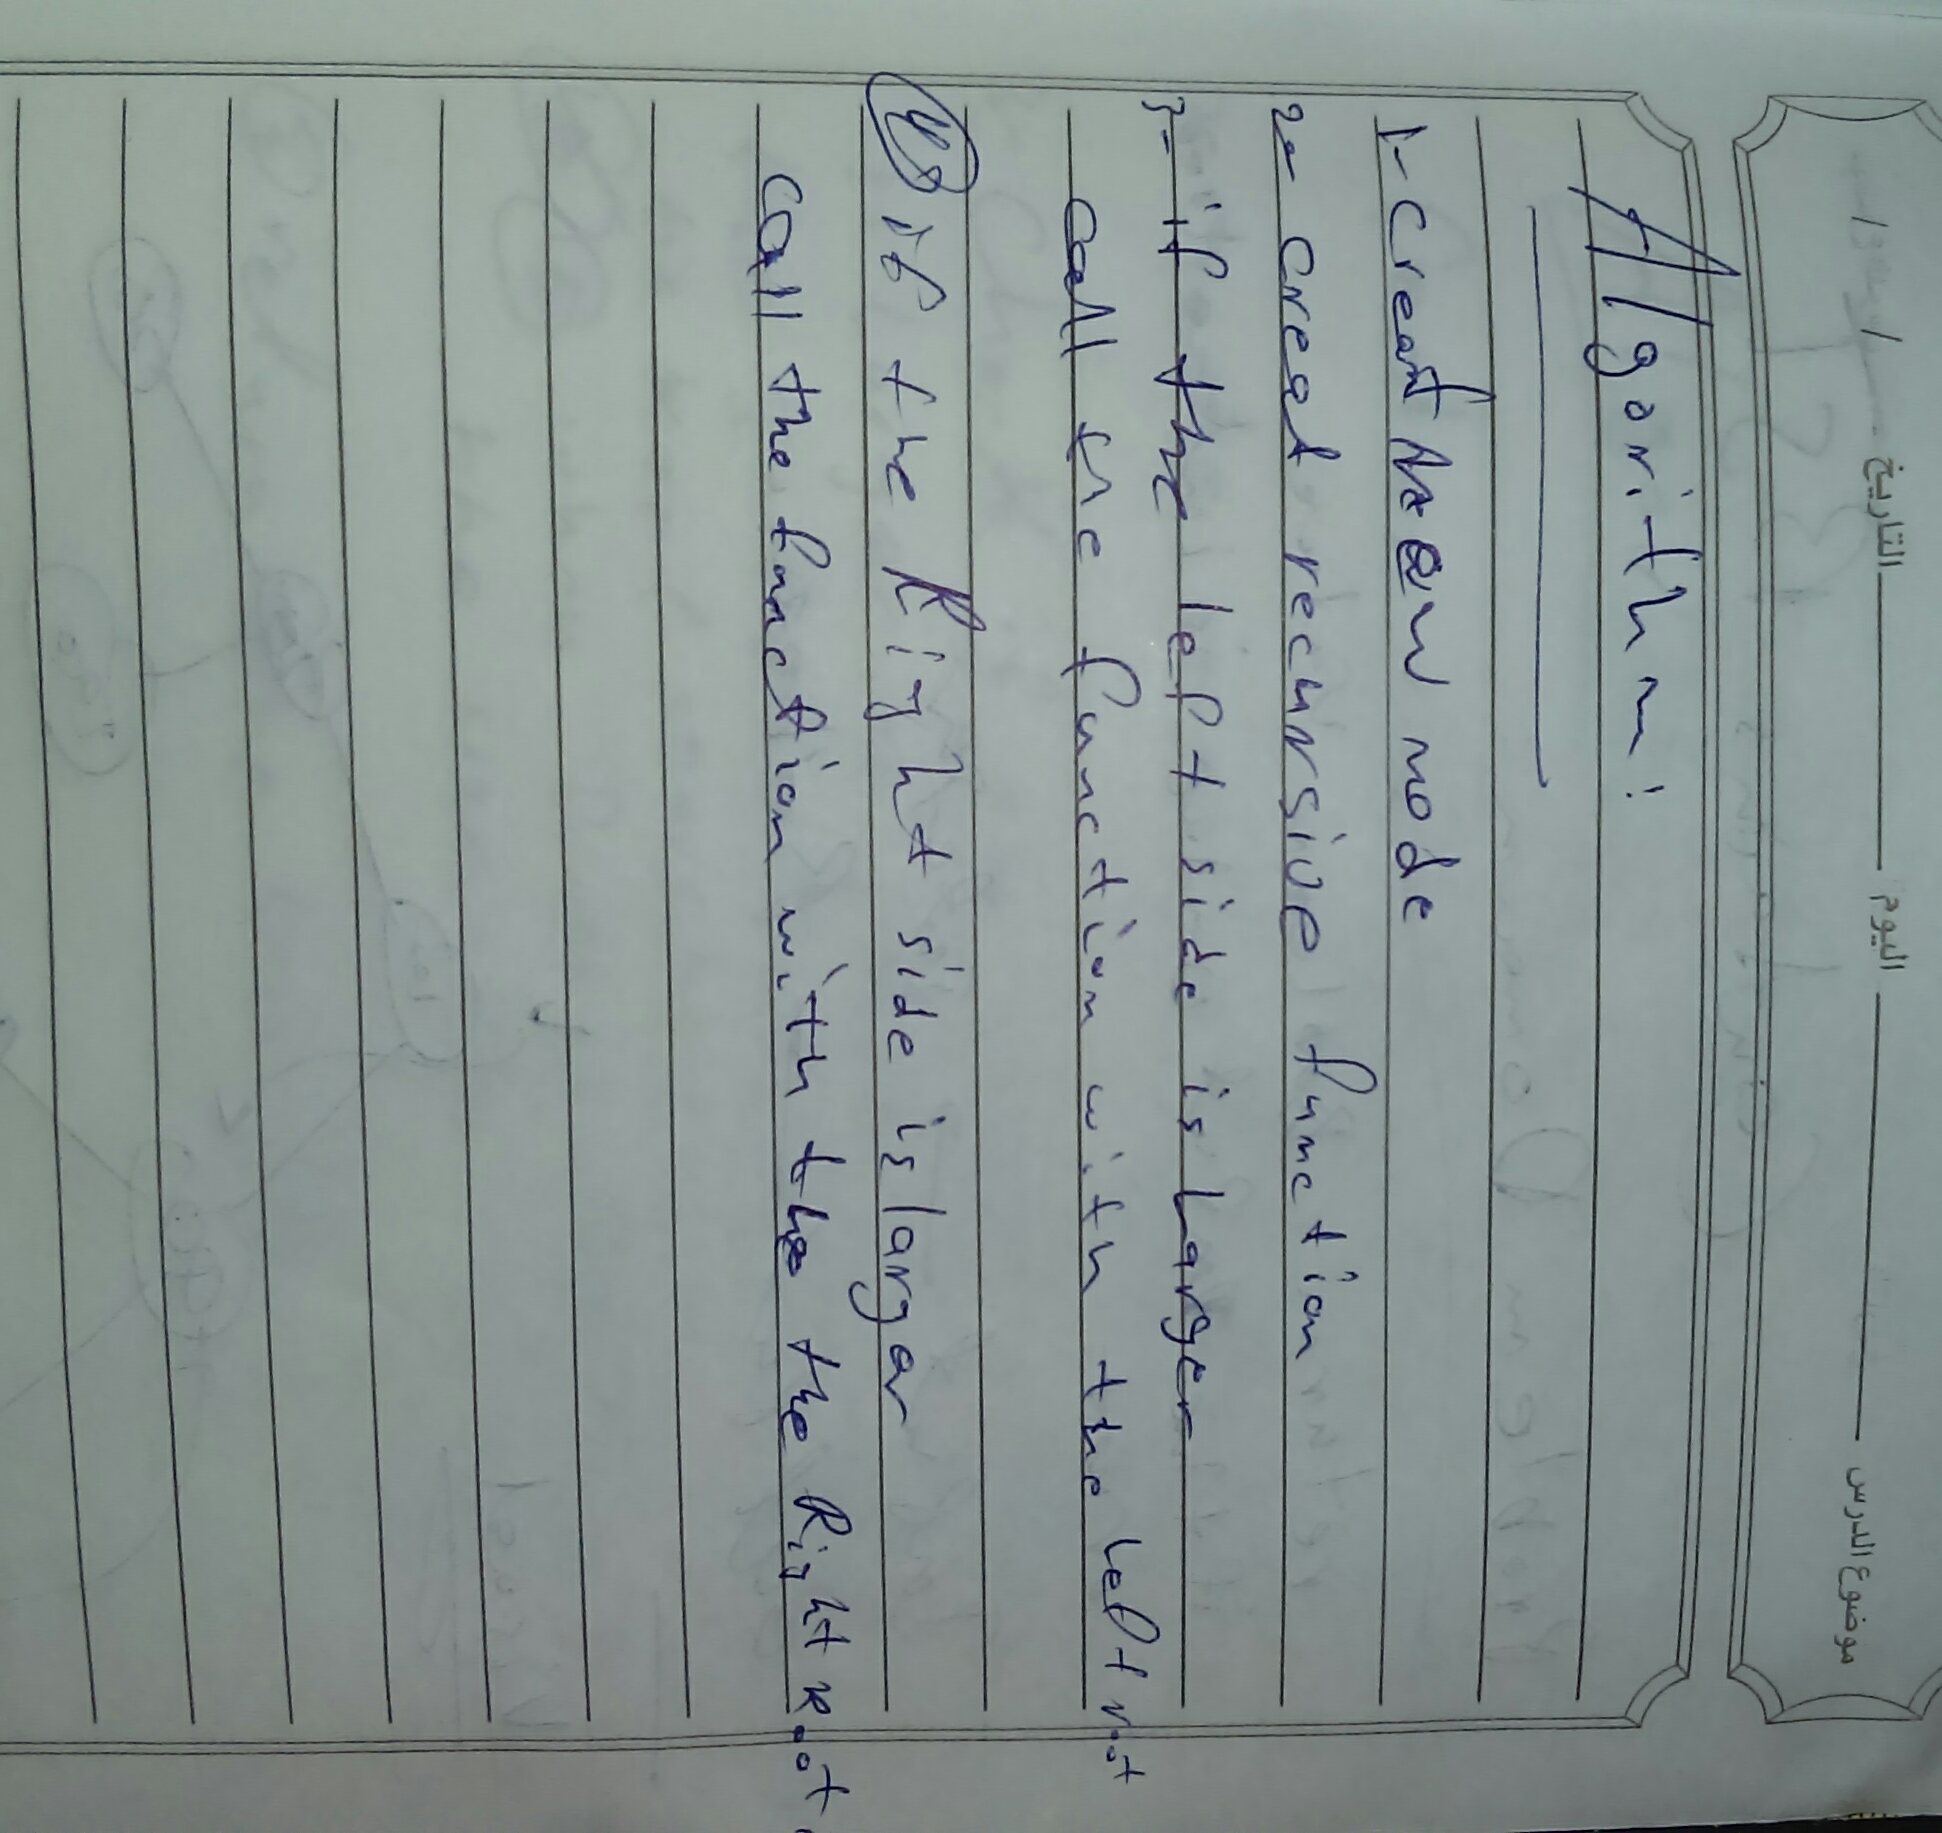 التاريخ اليوم موضوع الدرس
Algorithm:
1- Creat new node
2- creat recursive function
3- if the left side is Larger
call the function with the left root
if the Right side is largar
call the function with the the Right Root.